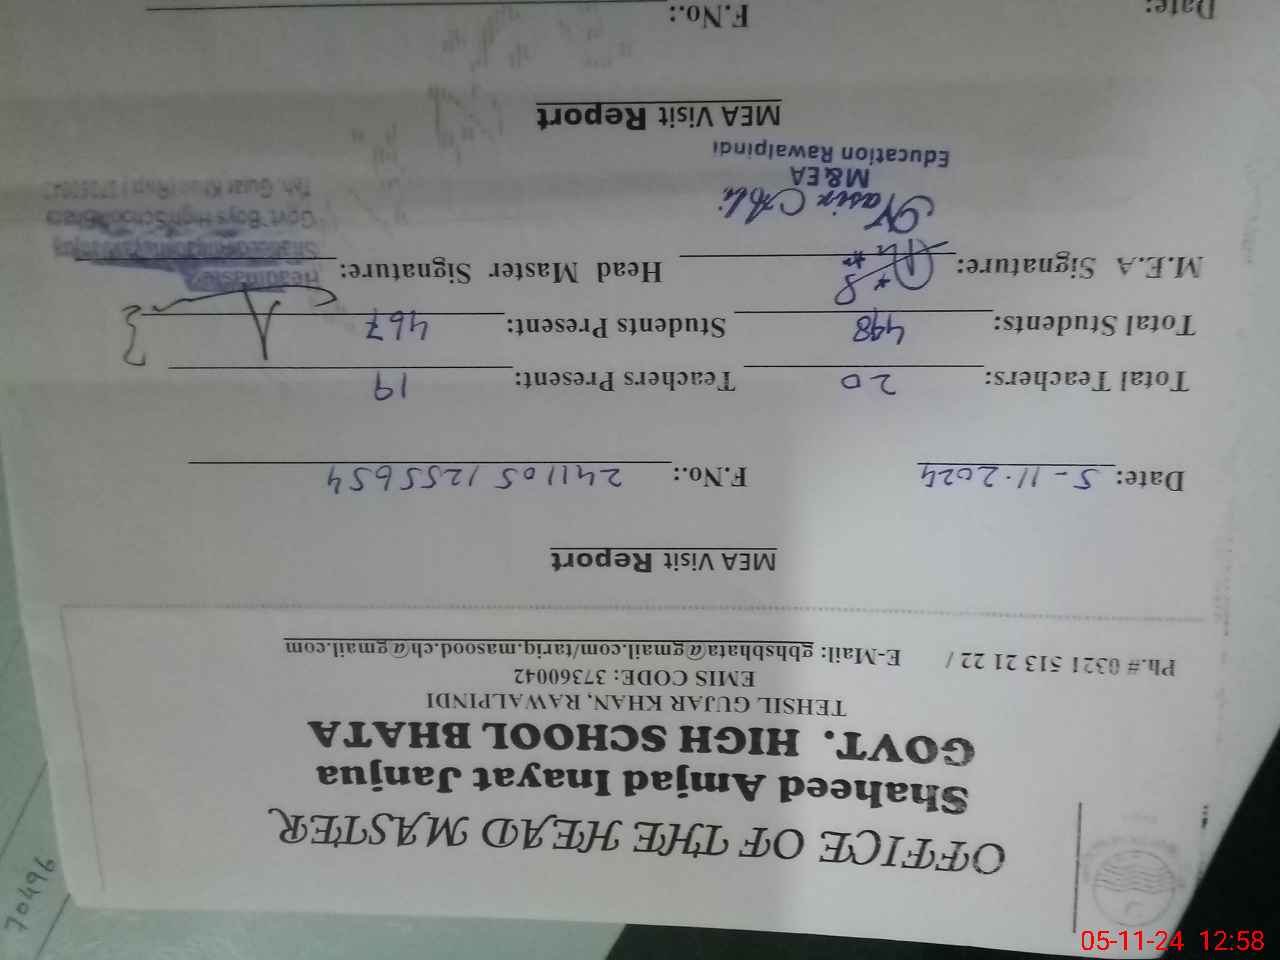 OFFICE OF THE HEAD MASTER
Shaheed Amjad Inayat Janjua
GOVT. HIGH SCHOOL BHATA
TEHSIL GUJAR KHAN, RAWALPINDI
EMIS CODE: 37360042
Ph.# 0321 513 21 22 / E-Mail: gbhsbhata@gmail.com/tariq.masood.ch@gmail.com
MEA Visit Report
Date: 5-11-2024 F.No.: 241105 1255654
Total Teachers: 20 Teachers Present: 19
Total Students: 498 Students Present: 467
M.E.A Signature: Head Master Signature:
Headmaster
Nasir Ali
Govt. Boys High School Bhata
M&EA
Education Rawalpindi
MEA Visit Report
Date: F.No.:
70496
05-11-24 12:58